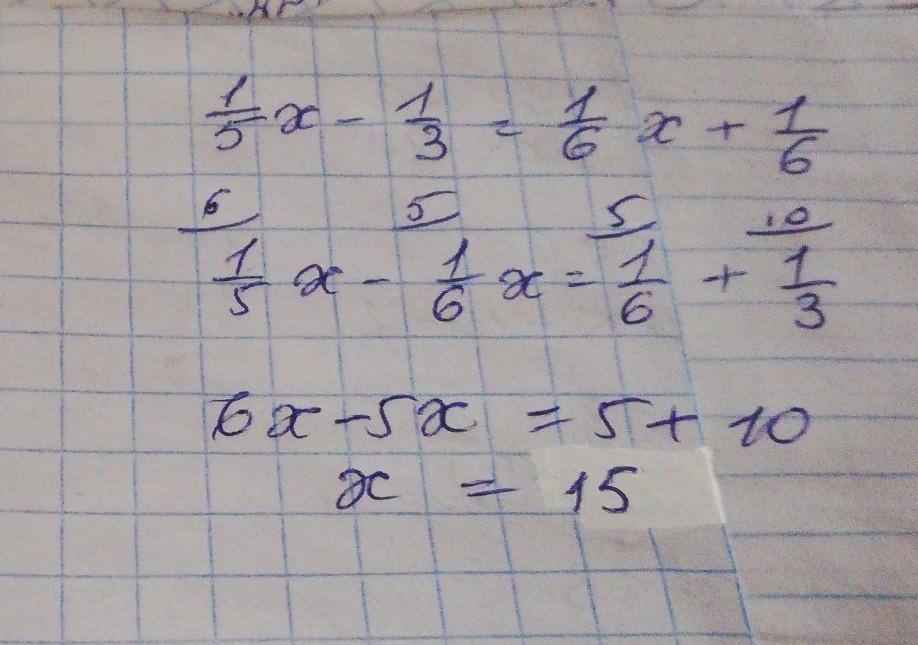 1/5 x - 1/3 = 1/6 x + 1/6
6 5 5 10
1/5 x - 1/6 x = 1/6 + 1/3
6x - 5x = 5 + 10
x = 15